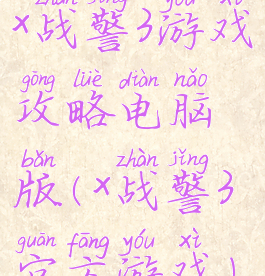 zhàn jǐng yóu xì
×战警3游戏
gōng lüè diàn nǎo
攻略电脑
bǎn zhàn jǐng
版(×战警3
guān fāng yóu xì
官方游戏)